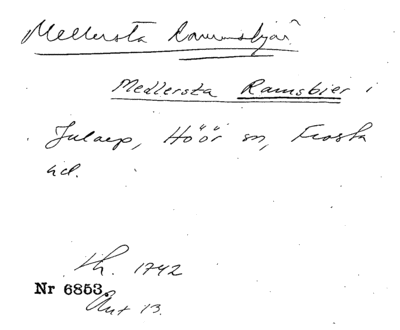 Mellersta Ramsbjär?
Medlersta Ramsbier i
Julaep, Höör sn, Frosta
hd.
Lh. 1742
Nr 6853.
Akt 13.